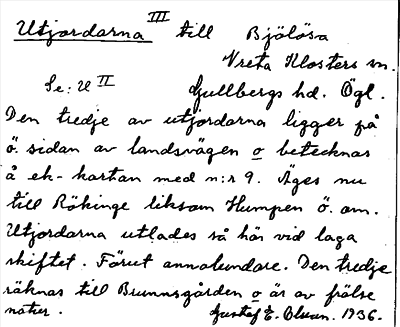 Utjordarna III till Bjölösa
Vreta Klosters sn.
Se: U II Gullbergs hd. Ögl.
Den tredje av utjordarna ligger på
ö. sidan av landsvägen o betecknas
å ek-kartan med n:r 9. Äges nu
till Rökinge liksom Humpen ö. om.
Utjordarna utlades så här vid laga
skiftet. Förut annorlundare. Den tredje
räknas till Brunnsgården o är av frälse
natur. Gustaf E. Olsson. 1936.